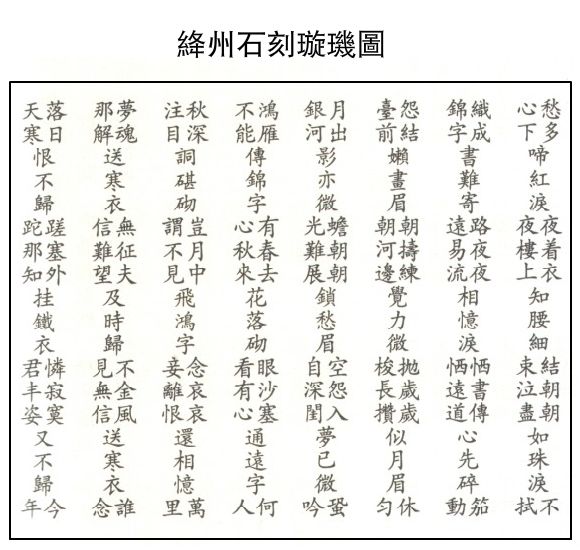 絳州石刻璇璣圖
愁多心下啼紅淚夜着衣夜樓上知腰細結朝朝束泣盡如珠淚不拭
織成錦字書難寄路夜夜遠易流相憶淚恓書傳恓遠道心先碎笳動
怨結臺前嬾畫眉朝擣練朝河邊覺力微拋歲歲梭長攢似月眉休匀
月出銀河影亦微蟾朝朝光難展鎖愁眉空怨入自深閨夢已微蛩吟
鴻雁不能傳錦字有春去心秋來花落砌眼沙塞看有心通遠字何人
秋深注目詞碪砌豈月中謂不見飛鴻字念哀哀妾離恨還相憶萬里
夢魂那解送寒衣無征夫信難望及時歸不金風見無信送寒衣誰念
落日天寒恨不歸蹉塞外跎那知挂鐵衣憐寂寞君丰姿又不歸今年